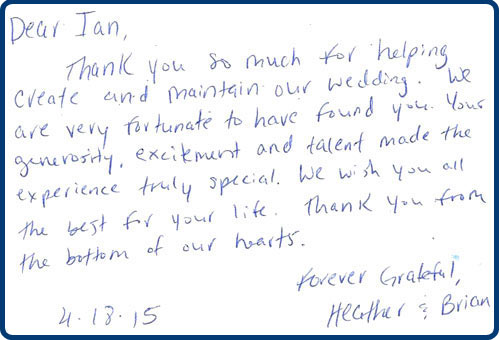 Dear Ian,
Thank you so much for helping
create and maintain our wedding. We
are very fortunate to have found you. Your
generosity, excitement and talent made the
experience truly special. We wish you all
the best for your life. Thank you from
the bottom of our hearts.
Forever Grateful,
Heather & Brian
4.18.15